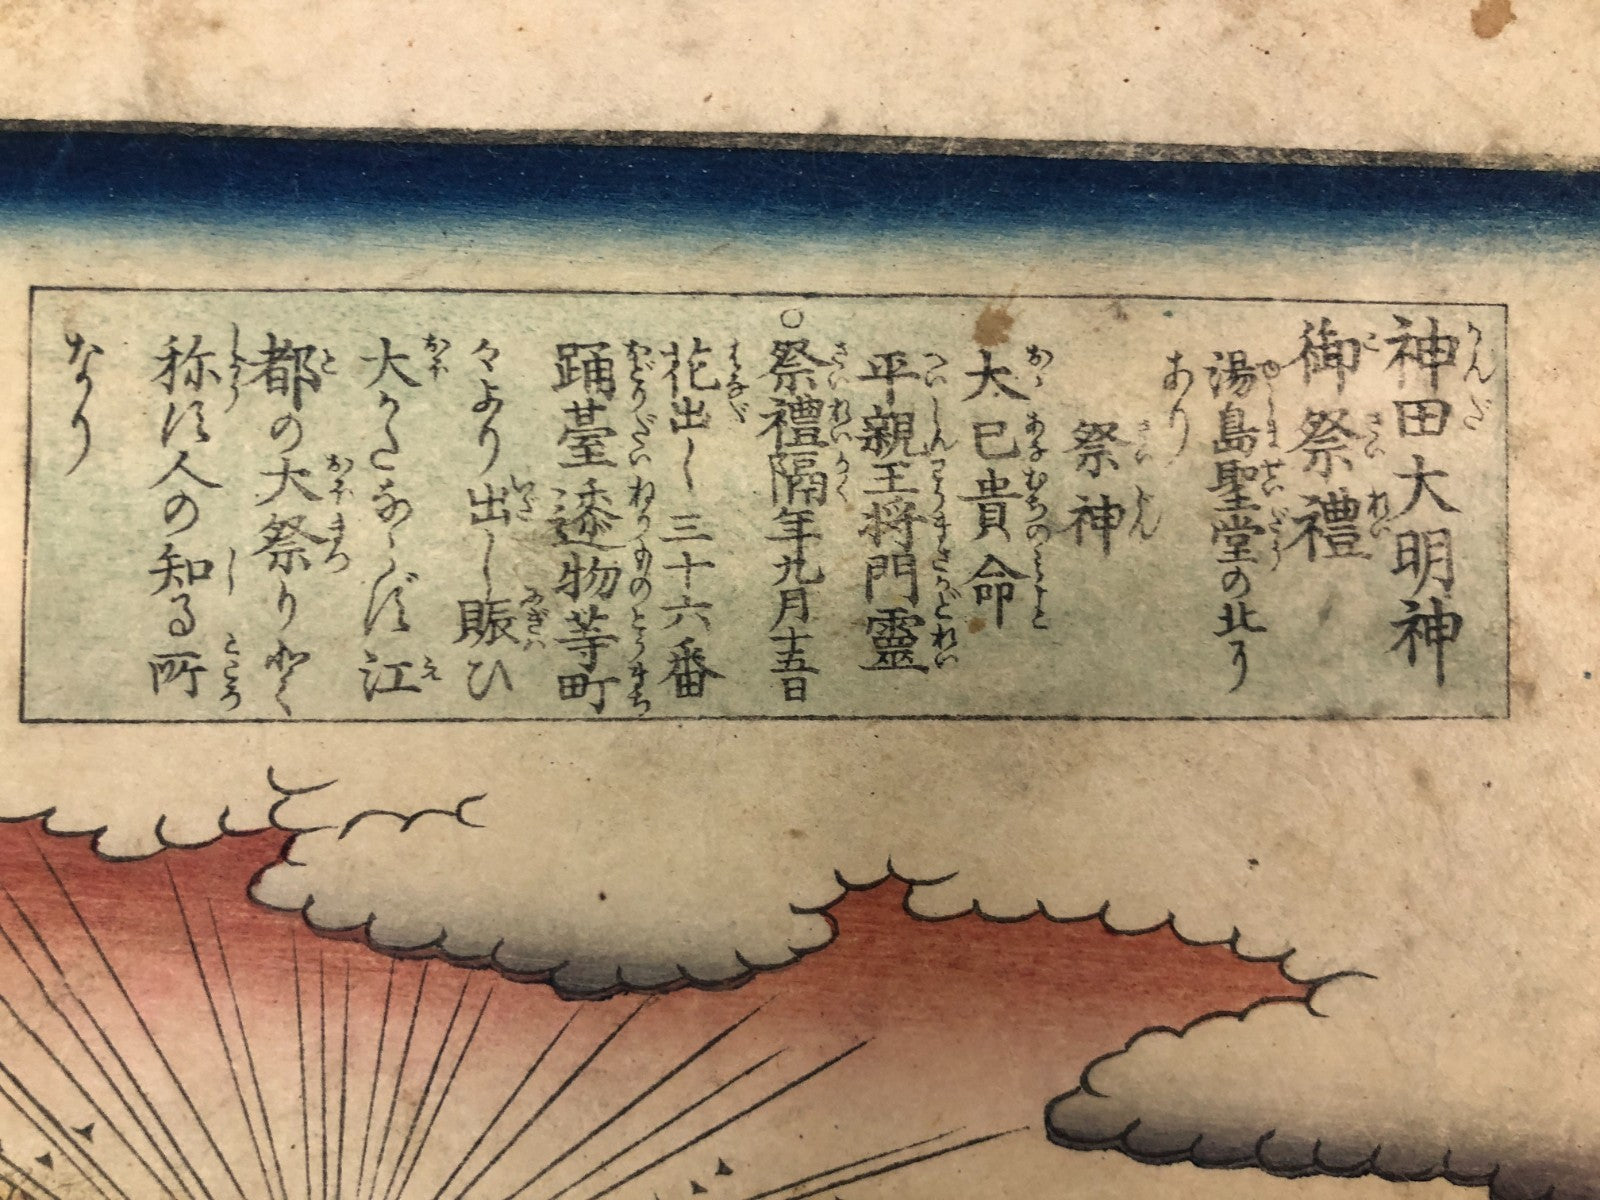 神田大明神
御祭禮
湯島聖堂の北り
あり
祭神
大己貴命
平親王将門靈
○祭禮隔年九月十五日
花出し三十六番
踊臺邌物等町
々より出し賑ひ
大かたならず江
都の大祭りと
称す人の知る所
なり